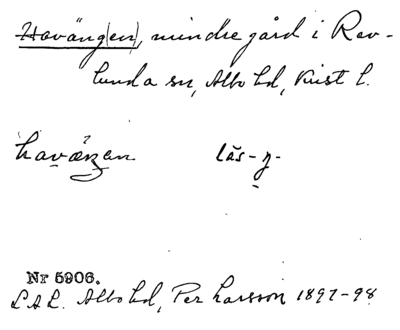 Haväng(en), mindre gård i Rav-
lunda sn, Albo hd, Krist l.
havæŋen läs -ŋ-
Nr 5906.
L.A.L. Albo hd, Per Larsson 1897-98